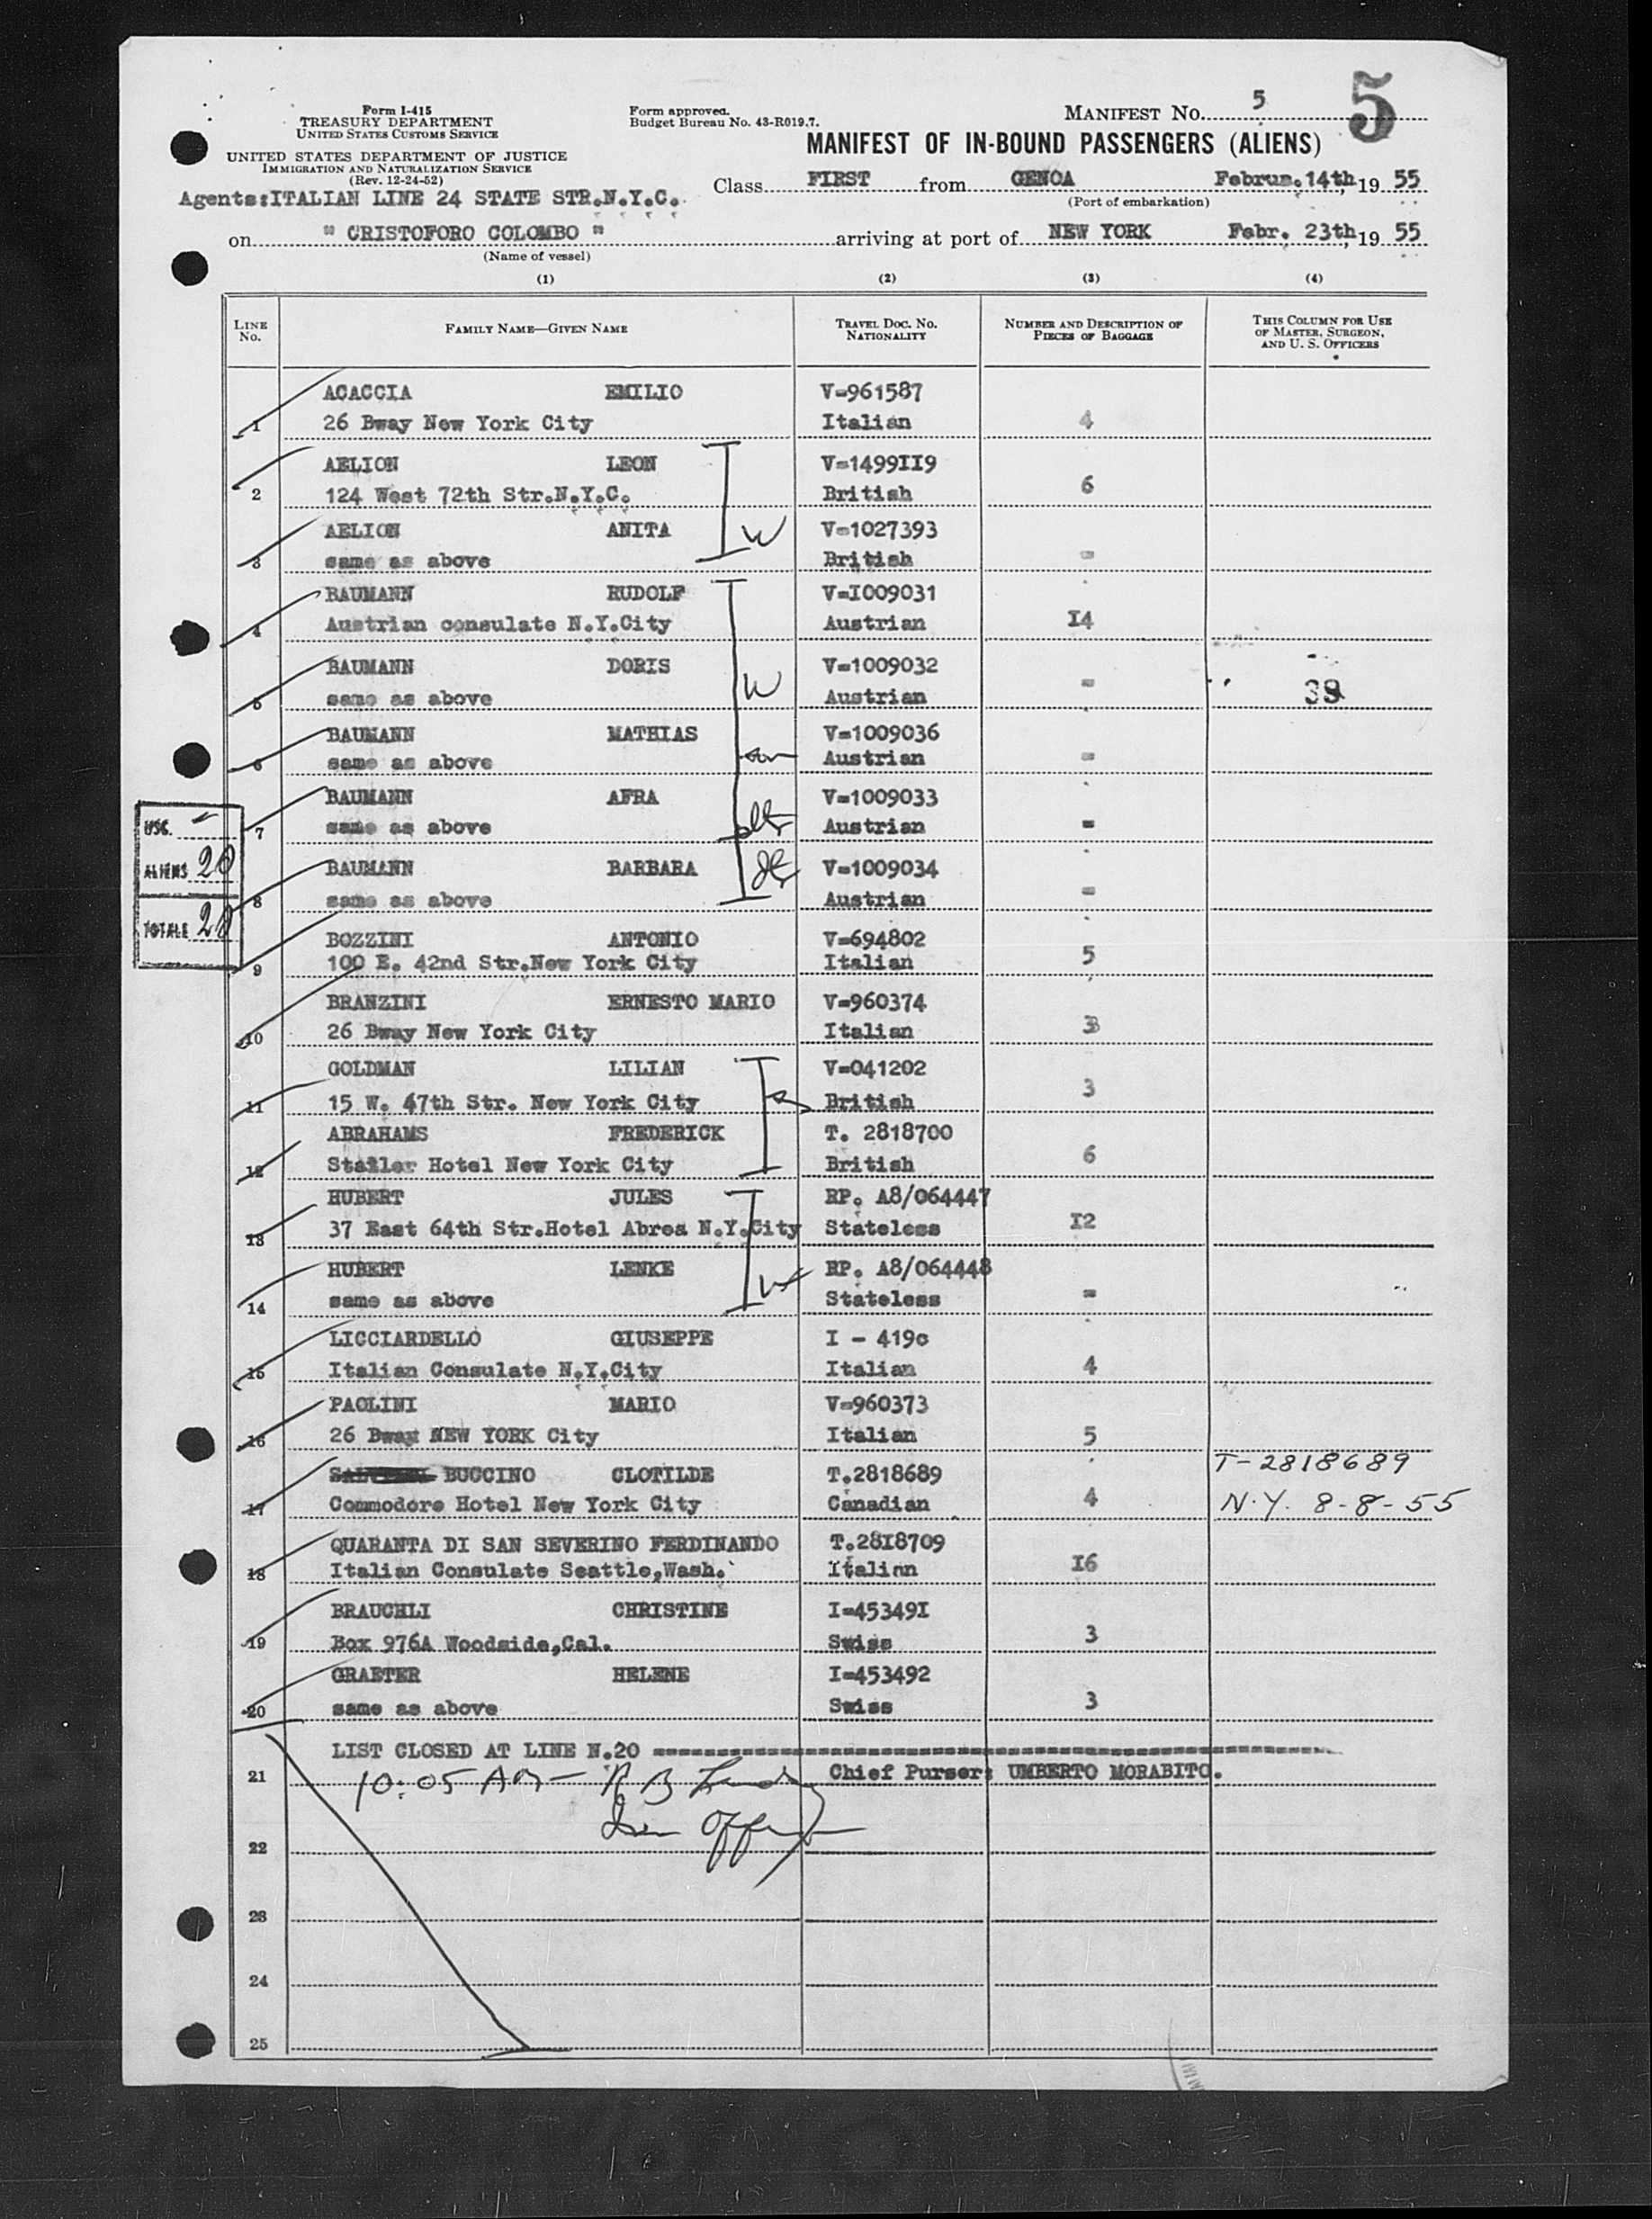 Form I-415
TREASURY DEPARTMENT
UNITED STATES CUSTOMS SERVICE
UNITED STATES DEPARTMENT OF JUSTICE
IMMIGRATION AND NATURALIZATION SERVICE
(Rev. 12-24-52)
Form approved.
Budget Bureau No. 43-R019.7.
MANIFEST No. 5
5
MANIFEST OF IN-BOUND PASSENGERS (ALIENS)
Agents:ITALIAN LINE 24 STATE STR.N.Y.C.
Class FIRST from GENOA Februa.14th, 19 55
(Port of embarkation)
on " CRISTOFORO COLOMBO " arriving at port of NEW YORK Febr. 23th, 19 55
(Name of vessel)
(1) (2) (3) (4)
LINE No. FAMILY NAME—GIVEN NAME TRAVEL DOC. NO. NATIONALITY NUMBER AND DESCRIPTION OF PIECES OF BAGGAGE THIS COLUMN FOR USE OF MASTER, SURGEON, AND U. S. OFFICERS
ACACCIA EMILIO V-961587
1 26 Bway New York City Italian 4
AELION LEON V-1499II9
2 124 West 72th Str.N.Y.C. British 6
AELION ANITA W V-1027393
3 same as above British -
BAUMANN RUDOLF V-I009031
4 Austrian consulate N.Y.City Austrian I4
BAUMANN DORIS W V-1009032
5 same as above Austrian - 38
BAUMANN MATHIAS son V-1009036
6 same as above Austrian -
BAUMANN AFRA V-1009033
7 same as above Austrian -
BAUMANN BARBARA V-1009034
8 same as above Austrian -
USC. -
ALIENS 20
TOTALE 20
BOZZINI ANTONIO V-694802
9 100 E. 42nd Str.New York City Italian 5
BRANZINI ERNESTO MARIO V-960374
10 26 Bway New York City Italian 3
GOLDMAN LILIAN V-041202
11 15 W. 47th Str. New York City British 3
ABRAHAMS FREDERICK T. 2818700
12 Statler Hotel New York City British 6
HUBERT JULES RP. A8/064447
13 37 East 64th Str.Hotel Abrea N.Y.City Stateless I2
HUBERT LENKE W RP. A8/064448
14 same as above Stateless -
LICCIARDELLO GIUSEPPE I - 419c
15 Italian Consulate N.Y.City Italian 4
PAOLINI MARIO V-960373
16 26 Bway NEW YORK City Italian 5
BUCCINO CLOTILDE T.2818689 T-2818689
17 Commodore Hotel New York City Canadian 4 N.Y. 8-8-55
QUARANTA DI SAN SEVERINO FERDINANDO T.28I8709
18 Italian Consulate Seattle,Wash. Italian I6
BRAUCHLI CHRISTINE I-45349I
19 Box 976A Woodside,Cal. Swiss 3
GRAETER HELENE I-453492
20 same as above Swiss 3
LIST CLOSED AT LINE N.20
21 Chief Purser: UMBERTO MORABITO.
10:05 AM - R B
22
23
24
25